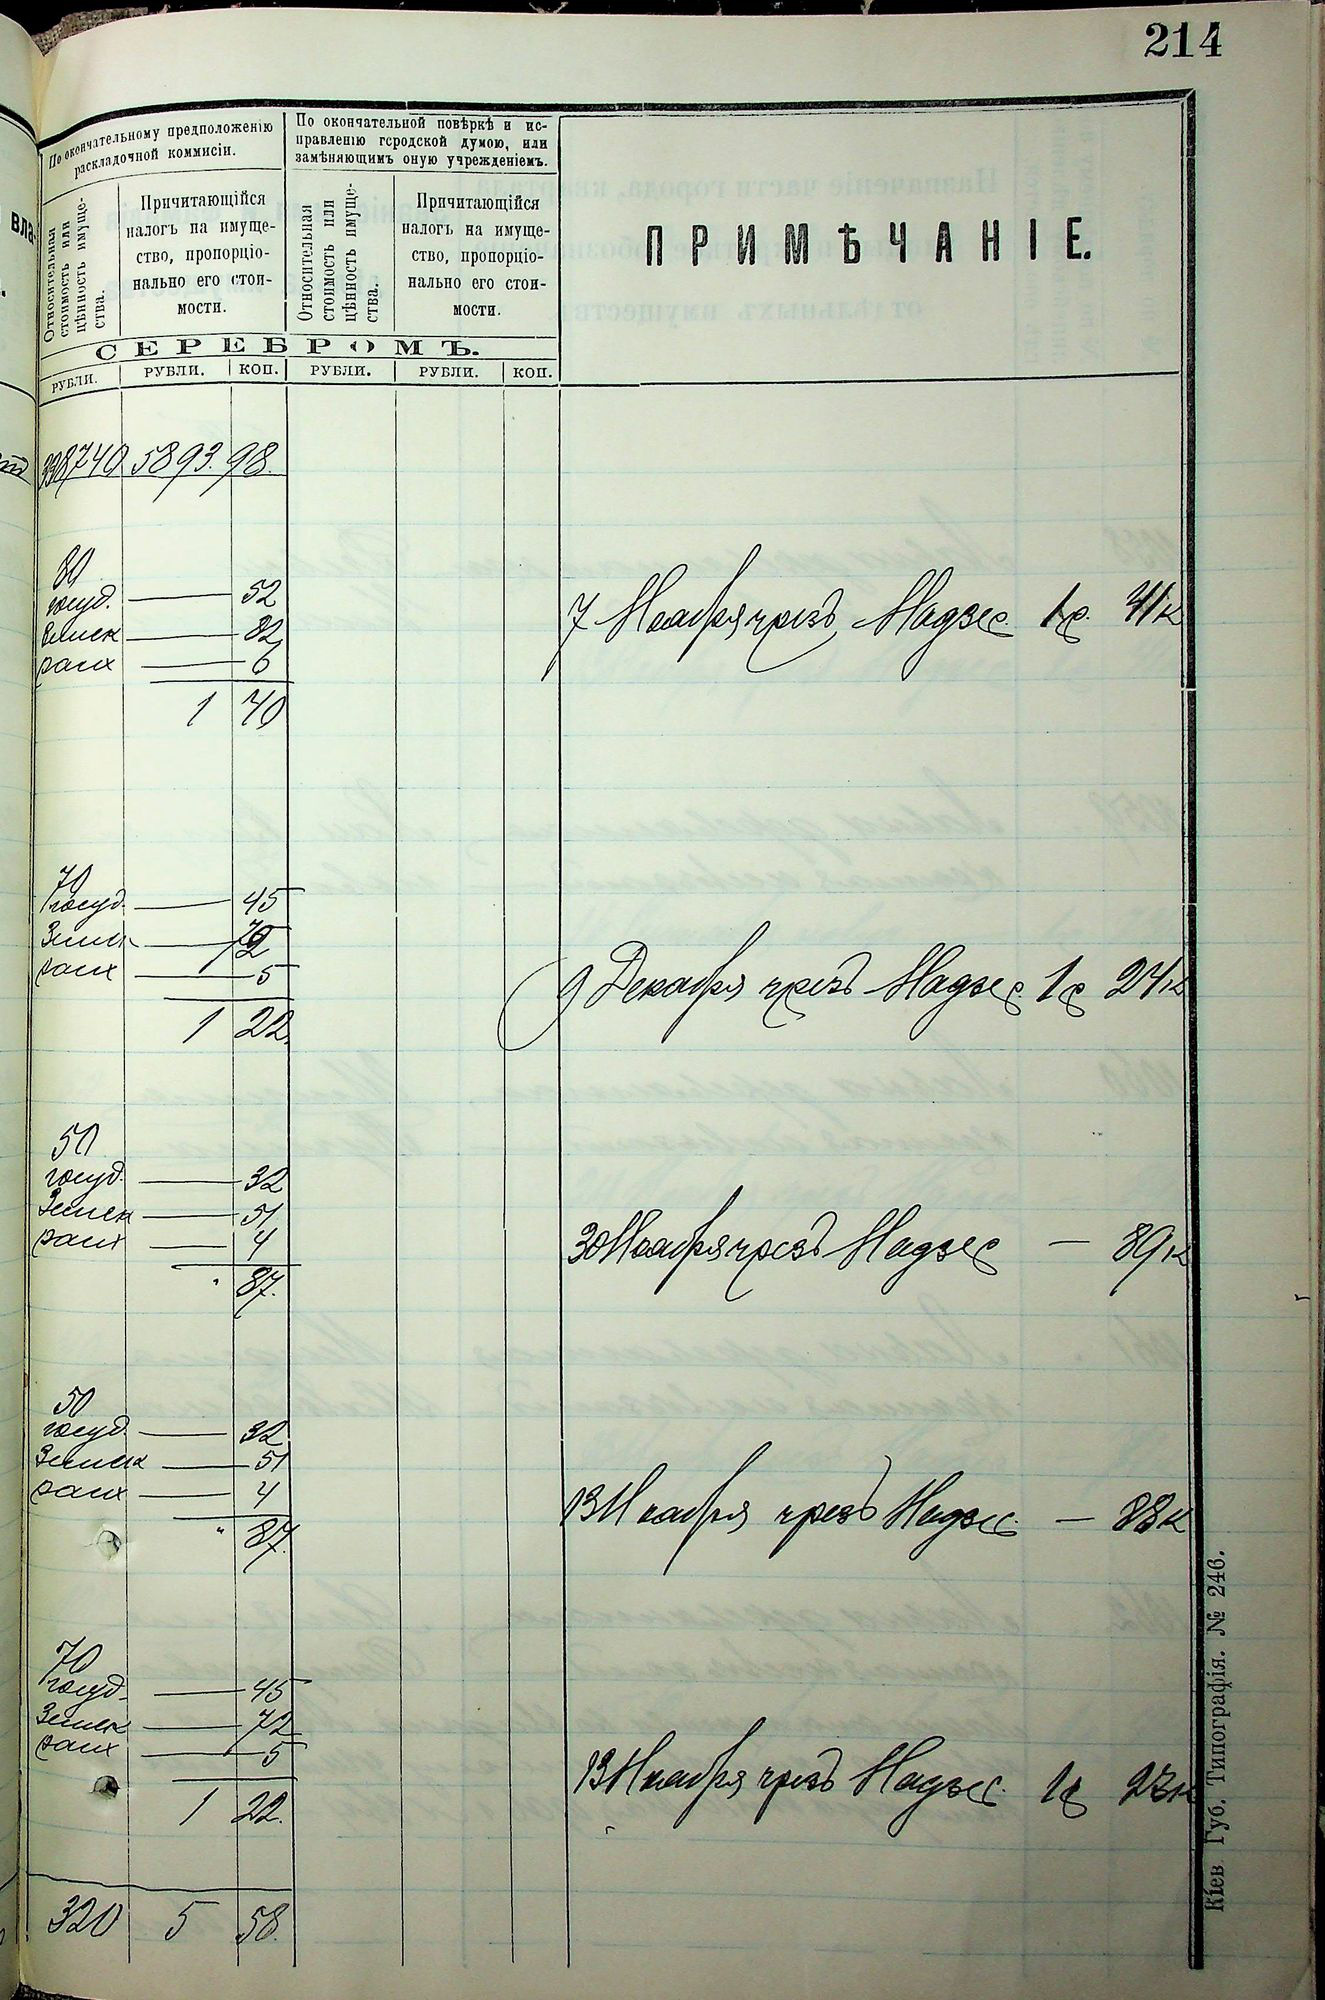 214
По окончательному предположенію
раскладочной коммисіи.
По окончательной повѣркѣ и ис-
правленію городской думою, или
замѣняющимъ оную учрежденіемъ.
вла-
Относительная
стоимость или
цѣнность имуще-
ства.
Причитающійся
налогъ на имуще-
ство, пропорціо-
нально его стои-
мости.
Относительная
стоимость или
цѣнность имуще-
ства.
Причитающійся
налогъ на имуще-
ство, пропорціо-
нально его стои-
мости.
ПРИМѢЧАНІЕ.
СЕРЕБРОМЪ.
РУБЛИ. РУБЛИ. КОП. РУБЛИ. РУБЛИ. КОП.
338740 5893. 98.
80
госуд. — 52
Земск — 82
7 Ноября чрезъ Надзес. 1 р. 41 к
разх — 6
1 70
70
госуд. — 45
Земск — 72
разх — 5
9 Декабря чрезъ Надзес. 1 р 24 к
1 22.
50
госуд. — 32
Земск — 51
разх — 4
30 Ноября чрезъ Надзес — 89 к
" 87.
50
госуд. — 32
Земск — 51
разх — 4
13 Ноября чрезъ Надзес. — 88 к
" 87.
70
госуд. — 45
Земск — 72
разх — 5
13 Ноября чрезъ Надзес. 1 р 23 к
1 22.
320 5 58.
Кіев. Губ. Типографія. № 246.